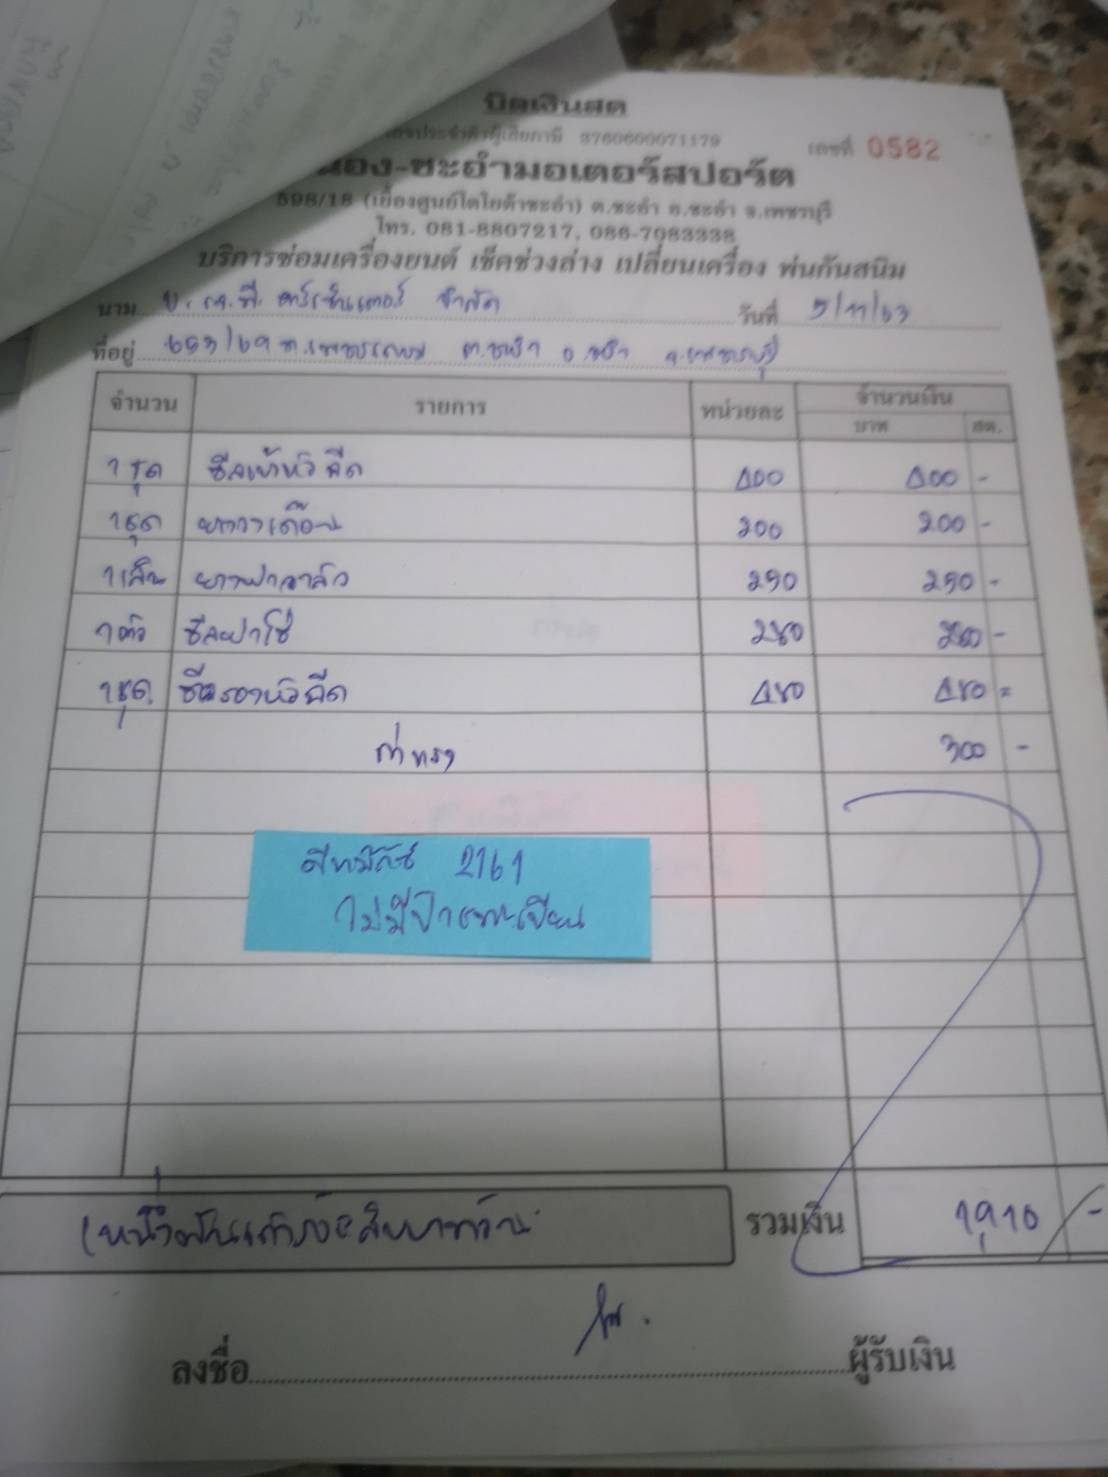 บิลเงินสด
เลขประจำตัวผู้เสียภาษี 3760600071179 เลขที่ 0582
นอง-ชะอำมอเตอร์สปอร์ต
598/18 (เยื้องศูนย์โตโยต้าชะอำ) ต.ชะอำ อ.ชะอำ จ.เพชรบุรี
โทร. 081-8807217, 086-7083338
บริการซ่อมเครื่องยนต์ เช็คช่วงล่าง เปลี่ยนเครื่อง พ่นกันสนิม
นาม บ. เค.พี. คาร์เซ็นเตอร์ จำกัด วันที่ 5/11/63
ที่อยู่ 653/69 ถ.เพชรเกษม ต.ชะอำ อ.ชะอำ จ.เพชรบุรี
จำนวน รายการ หน่วยละ จำนวนเงิน
บาท สต.
1 ชุด ซีลเบ้าหัวฉีด 400 400 -
1 ชุด 200 200 -
1 เส้น ยางฝาวาล์ว 290 290 -
1 ตัว ซีลฝาโซ่ 240 240 -
1 ชุด ซีลรองหัวฉีด 480 480 =
ค่าแรง 300 -
สีทมิฬ 2161
ไม่มีป้ายทะเบียน
(หนึ่งพันเก้าร้อยสิบบาทถ้วน รวมเงิน 1,910 -
ลงชื่อ ผู้รับเงิน